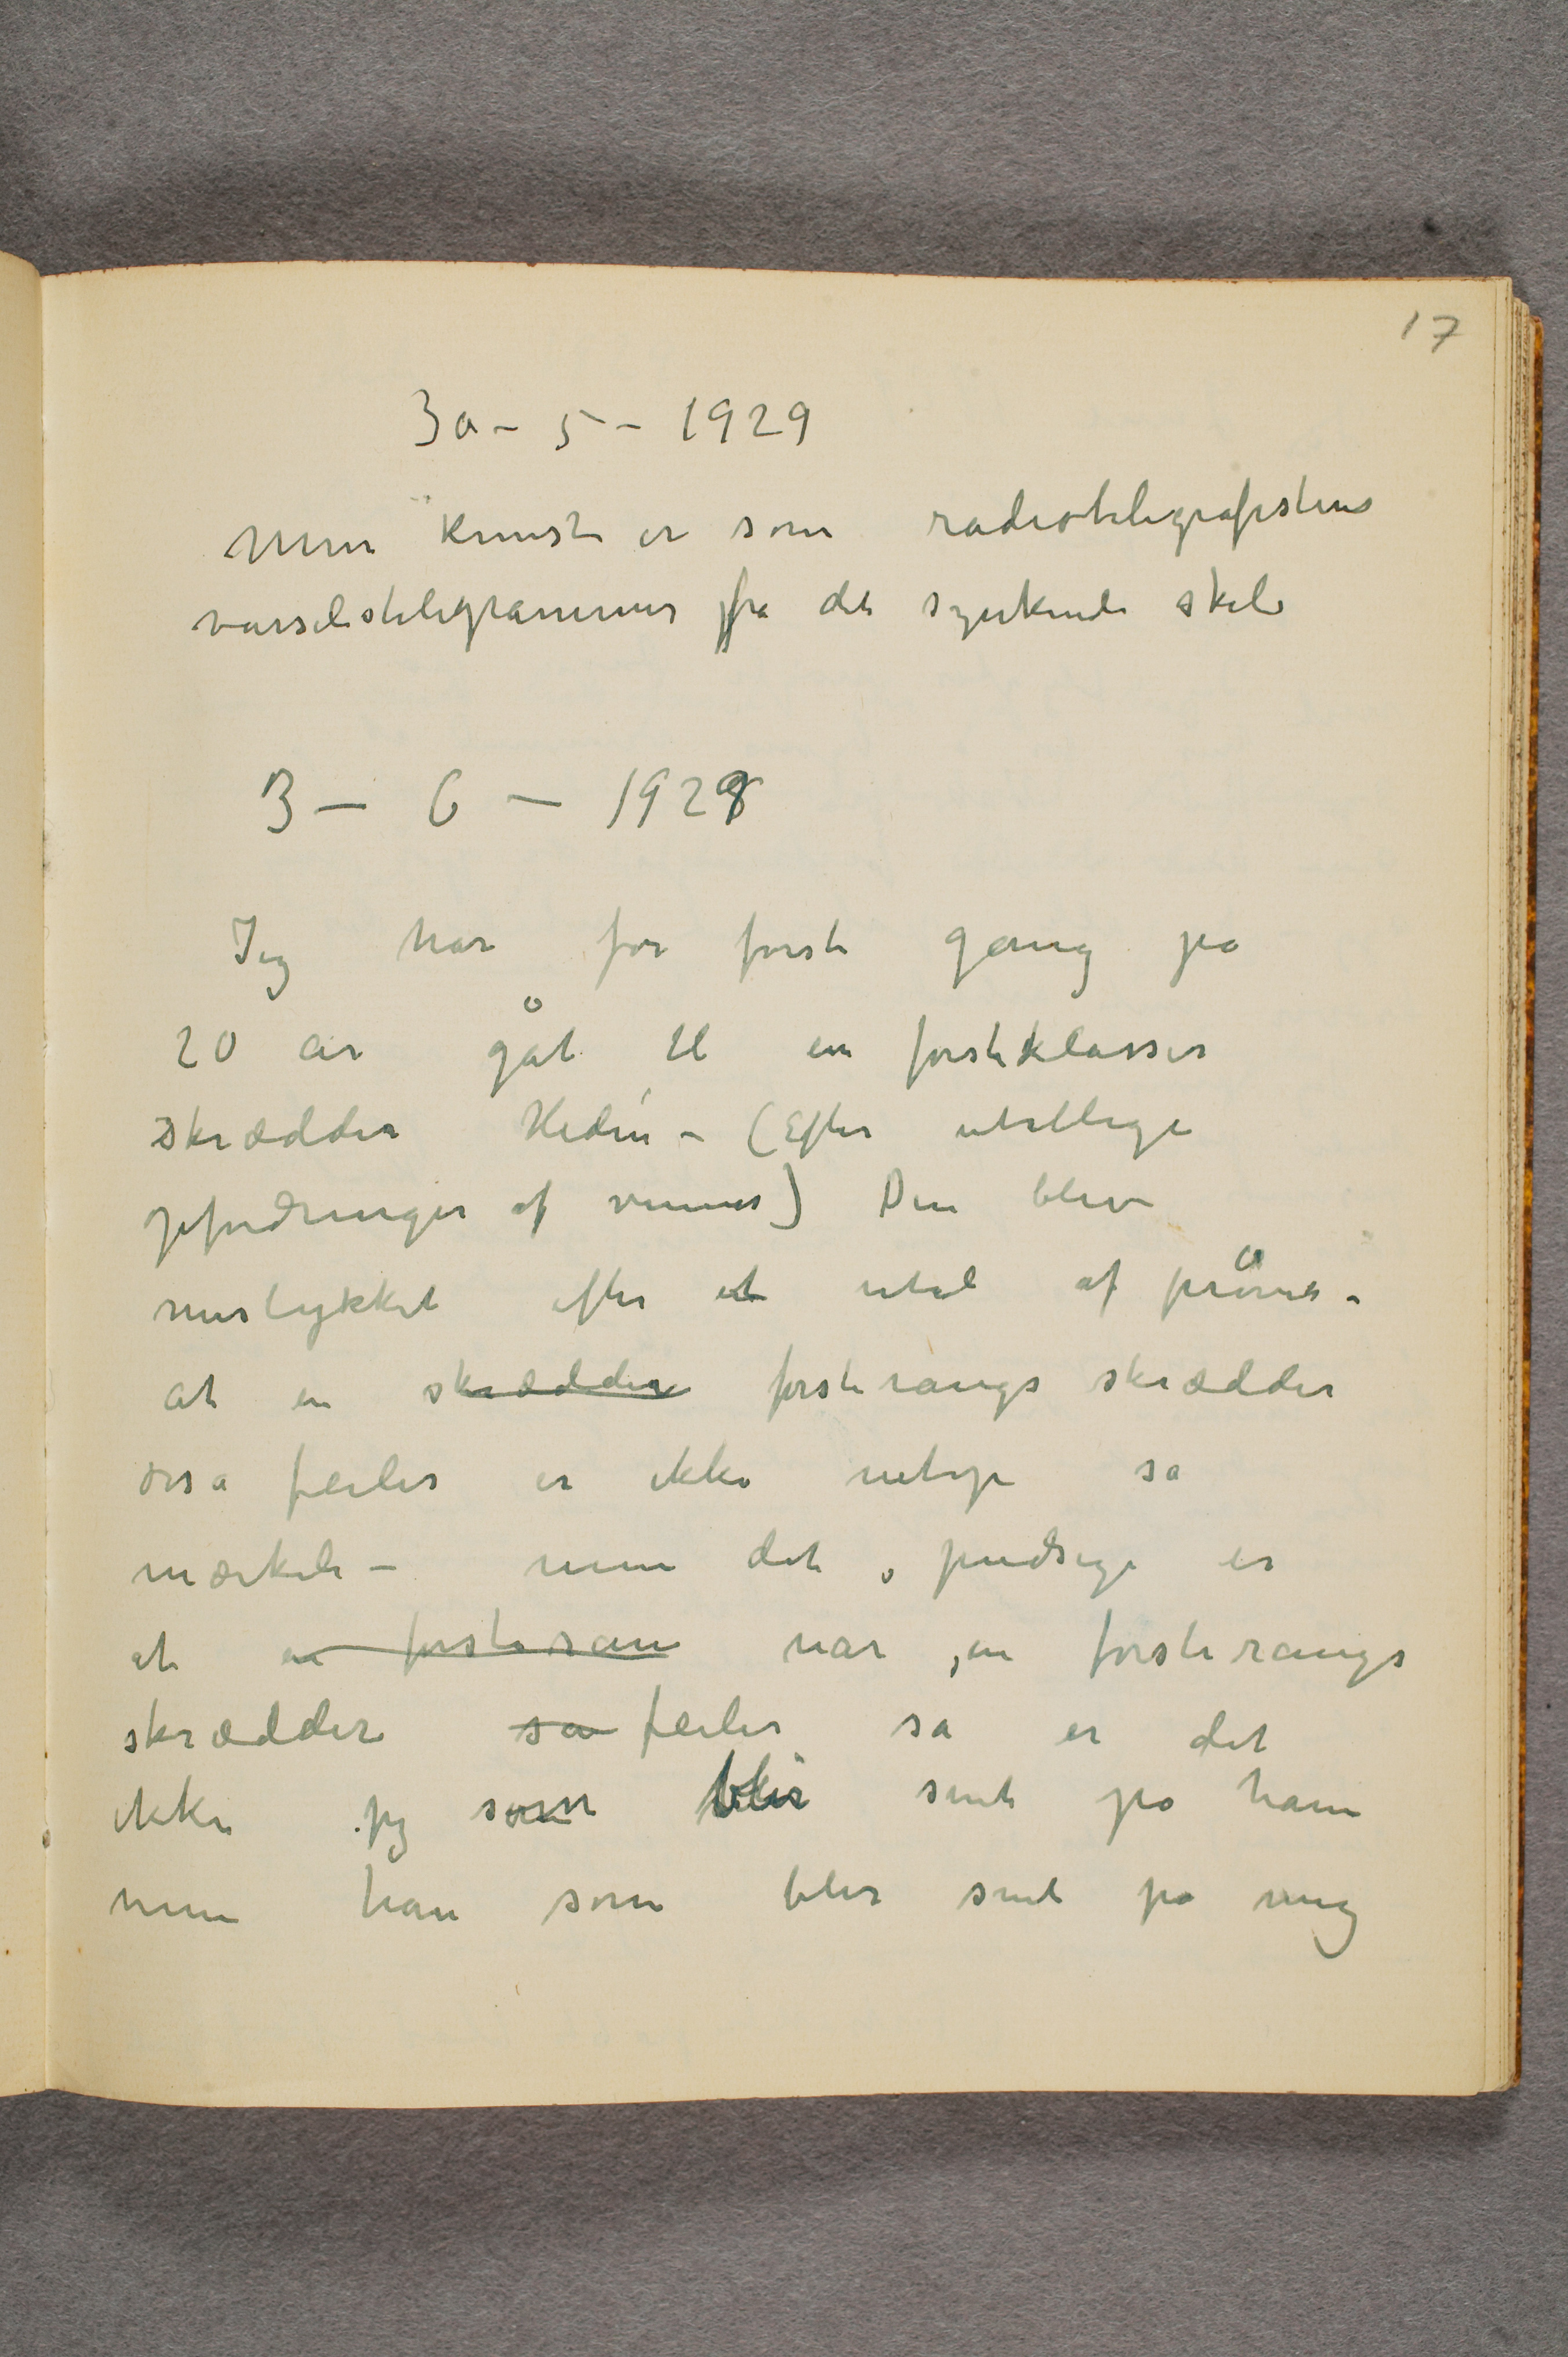 17
30 - 5 - 1929
Min Kunst er som radiotelegrafistens
varselstelegrammer fra det synkende skib
3 — 6 — 1929
Jeg har for første gang på
20 år gåt til en førsteklasses
skrædder Hedén – (Efter utallige
opfordringer af venner) Den blev
mislykket efter et utal af prøver.
At en skrædder førsterangs skrædder
osså feiler er ikke netop så
mærkeli – men det pudsige er
at en førsteran når en førsterangs
skrædder så feiler så er det
ikke jeg som blir sint på ham
men han som blir sint på mig